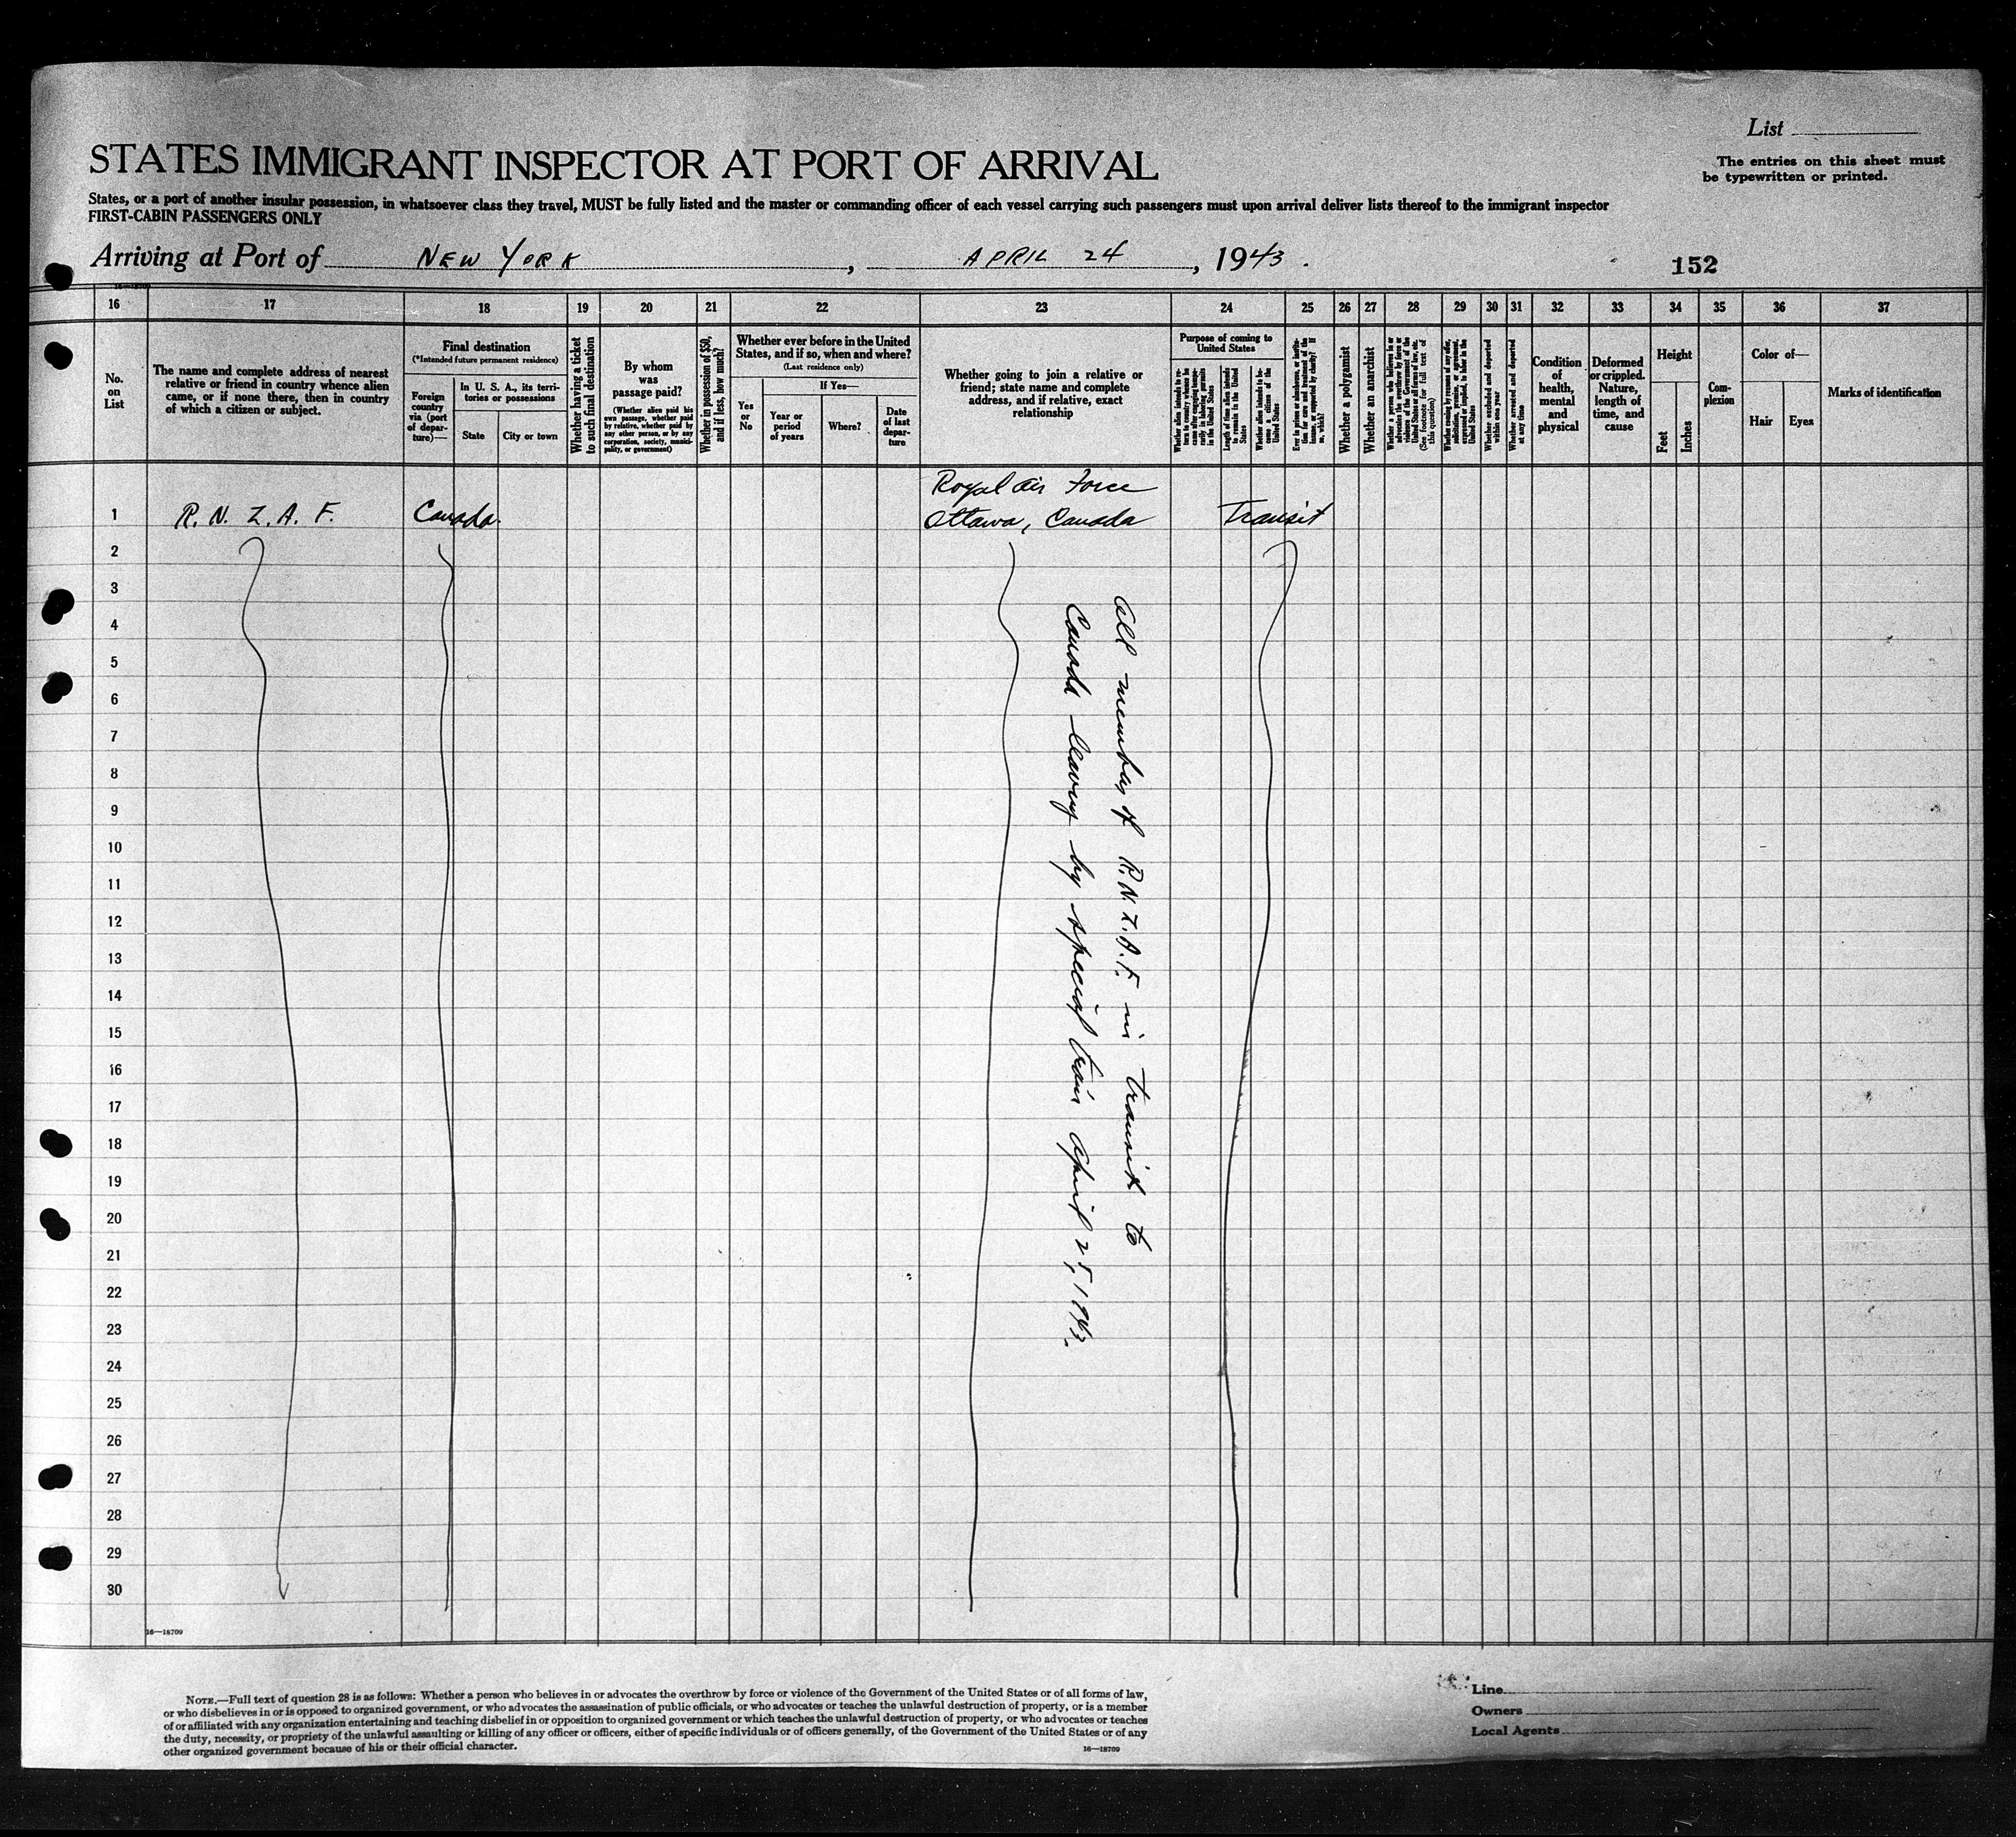 List
STATES IMMIGRANT INSPECTOR AT PORT OF ARRIVAL
The entries on this sheet must
be typewritten or printed.
States, or a port of another insular possession, in whatsoever class they travel, MUST be fully listed and the master or commanding officer of each vessel carrying such passengers must upon arrival deliver lists thereof to the immigrant inspector
FIRST-CABIN PASSENGERS ONLY
Arriving at Port of NEW YORK, APRIL 24, 1943.
152
16—18709
16 17 18 19 20 21 22 23 24 25 26 27 28 29 30 31 32 33 34 35 36 37
No.
on
List
The name and complete address of nearest
relative or friend in country whence alien
came, or if none there, then in country
of which a citizen or subject.
Final destination
(*Intended future permanent residence)
Foreign
country
via (port
of depar-
ture)—
In U. S. A., its terri-
tories or possessions
State
City or town
Whether having a ticket
to such final destination
By whom
was
passage paid?
(Whether alien paid his
own passage, whether paid
by relative, whether paid by
any other person, or by any
corporation, society, munici-
pality, or government)
Whether in possession of $50,
and if less, how much?
Whether ever before in the United
States, and if so, when and where?
(Last residence only)
Yes
or
No
If Yes—
Year or
period
of years
Where?
Date
of last
depar-
ture
Whether going to join a relative or
friend; state name and complete
address, and if relative, exact
relationship
Purpose of coming to
United States
Whether alien intends to re-
turn to country whence he
came after engaging tempo-
rarily in laboring pursuits
in the United States
Length of time alien intends
to remain in the United
States
Whether alien intends to be-
come a citizen of the
United States
Ever in prison or almshouse, or institu-
tion for care and treatment of the
insane, or supported by charity? If
so, which?
Whether a polygamist
Whether an anarchist
Whether a person who believes in or
advocates the overthrow by force or
violence of the Government of the
United States or all forms of law, etc.
(See footnote for full text of
this question)
Whether coming by reason of any offer,
solicitation, promise, or agreement,
expressed or implied, to labor in the
United States
Whether excluded and deported
within one year
Whether arrested and deported
at any time
Condition
of
health,
mental
and
physical
Deformed
or crippled.
Nature,
length of
time, and
cause
Height
Feet
Inches
Com-
plexion
Color of—
Hair
Eyes
Marks of identification
Royal Air Force
1 R. N. Z. A. F. Canada. Ottawa, Canada Transit
2
3
4
5
6
7
8
9
10
11
12
13
14
15
16
17
18
19
20
21
22
23
24
25
26
27
28
29
30
All members of R.N.Z.A.F. in transit to
Canada leaving by special train April 25, 1943.
16—18709
NOTE.—Full text of question 28 is as follows: Whether a person who believes in or advocates the overthrow by force or violence of the Government of the United States or of all forms of law,
or who disbelieves in or is opposed to organized government, or who advocates the assassination of public officials, or who advocates or teaches the unlawful destruction of property, or is a member
of or affiliated with any organization entertaining and teaching disbelief in or opposition to organized government or which teaches the unlawful destruction of property, or who advocates or teaches
the duty, necessity, or propriety of the unlawful assaulting or killing of any officer or officers, either of specific individuals or of officers generally, of the Government of the United States or of any
other organized government because of his or their official character.
16—18709
Line
Owners
Local Agents